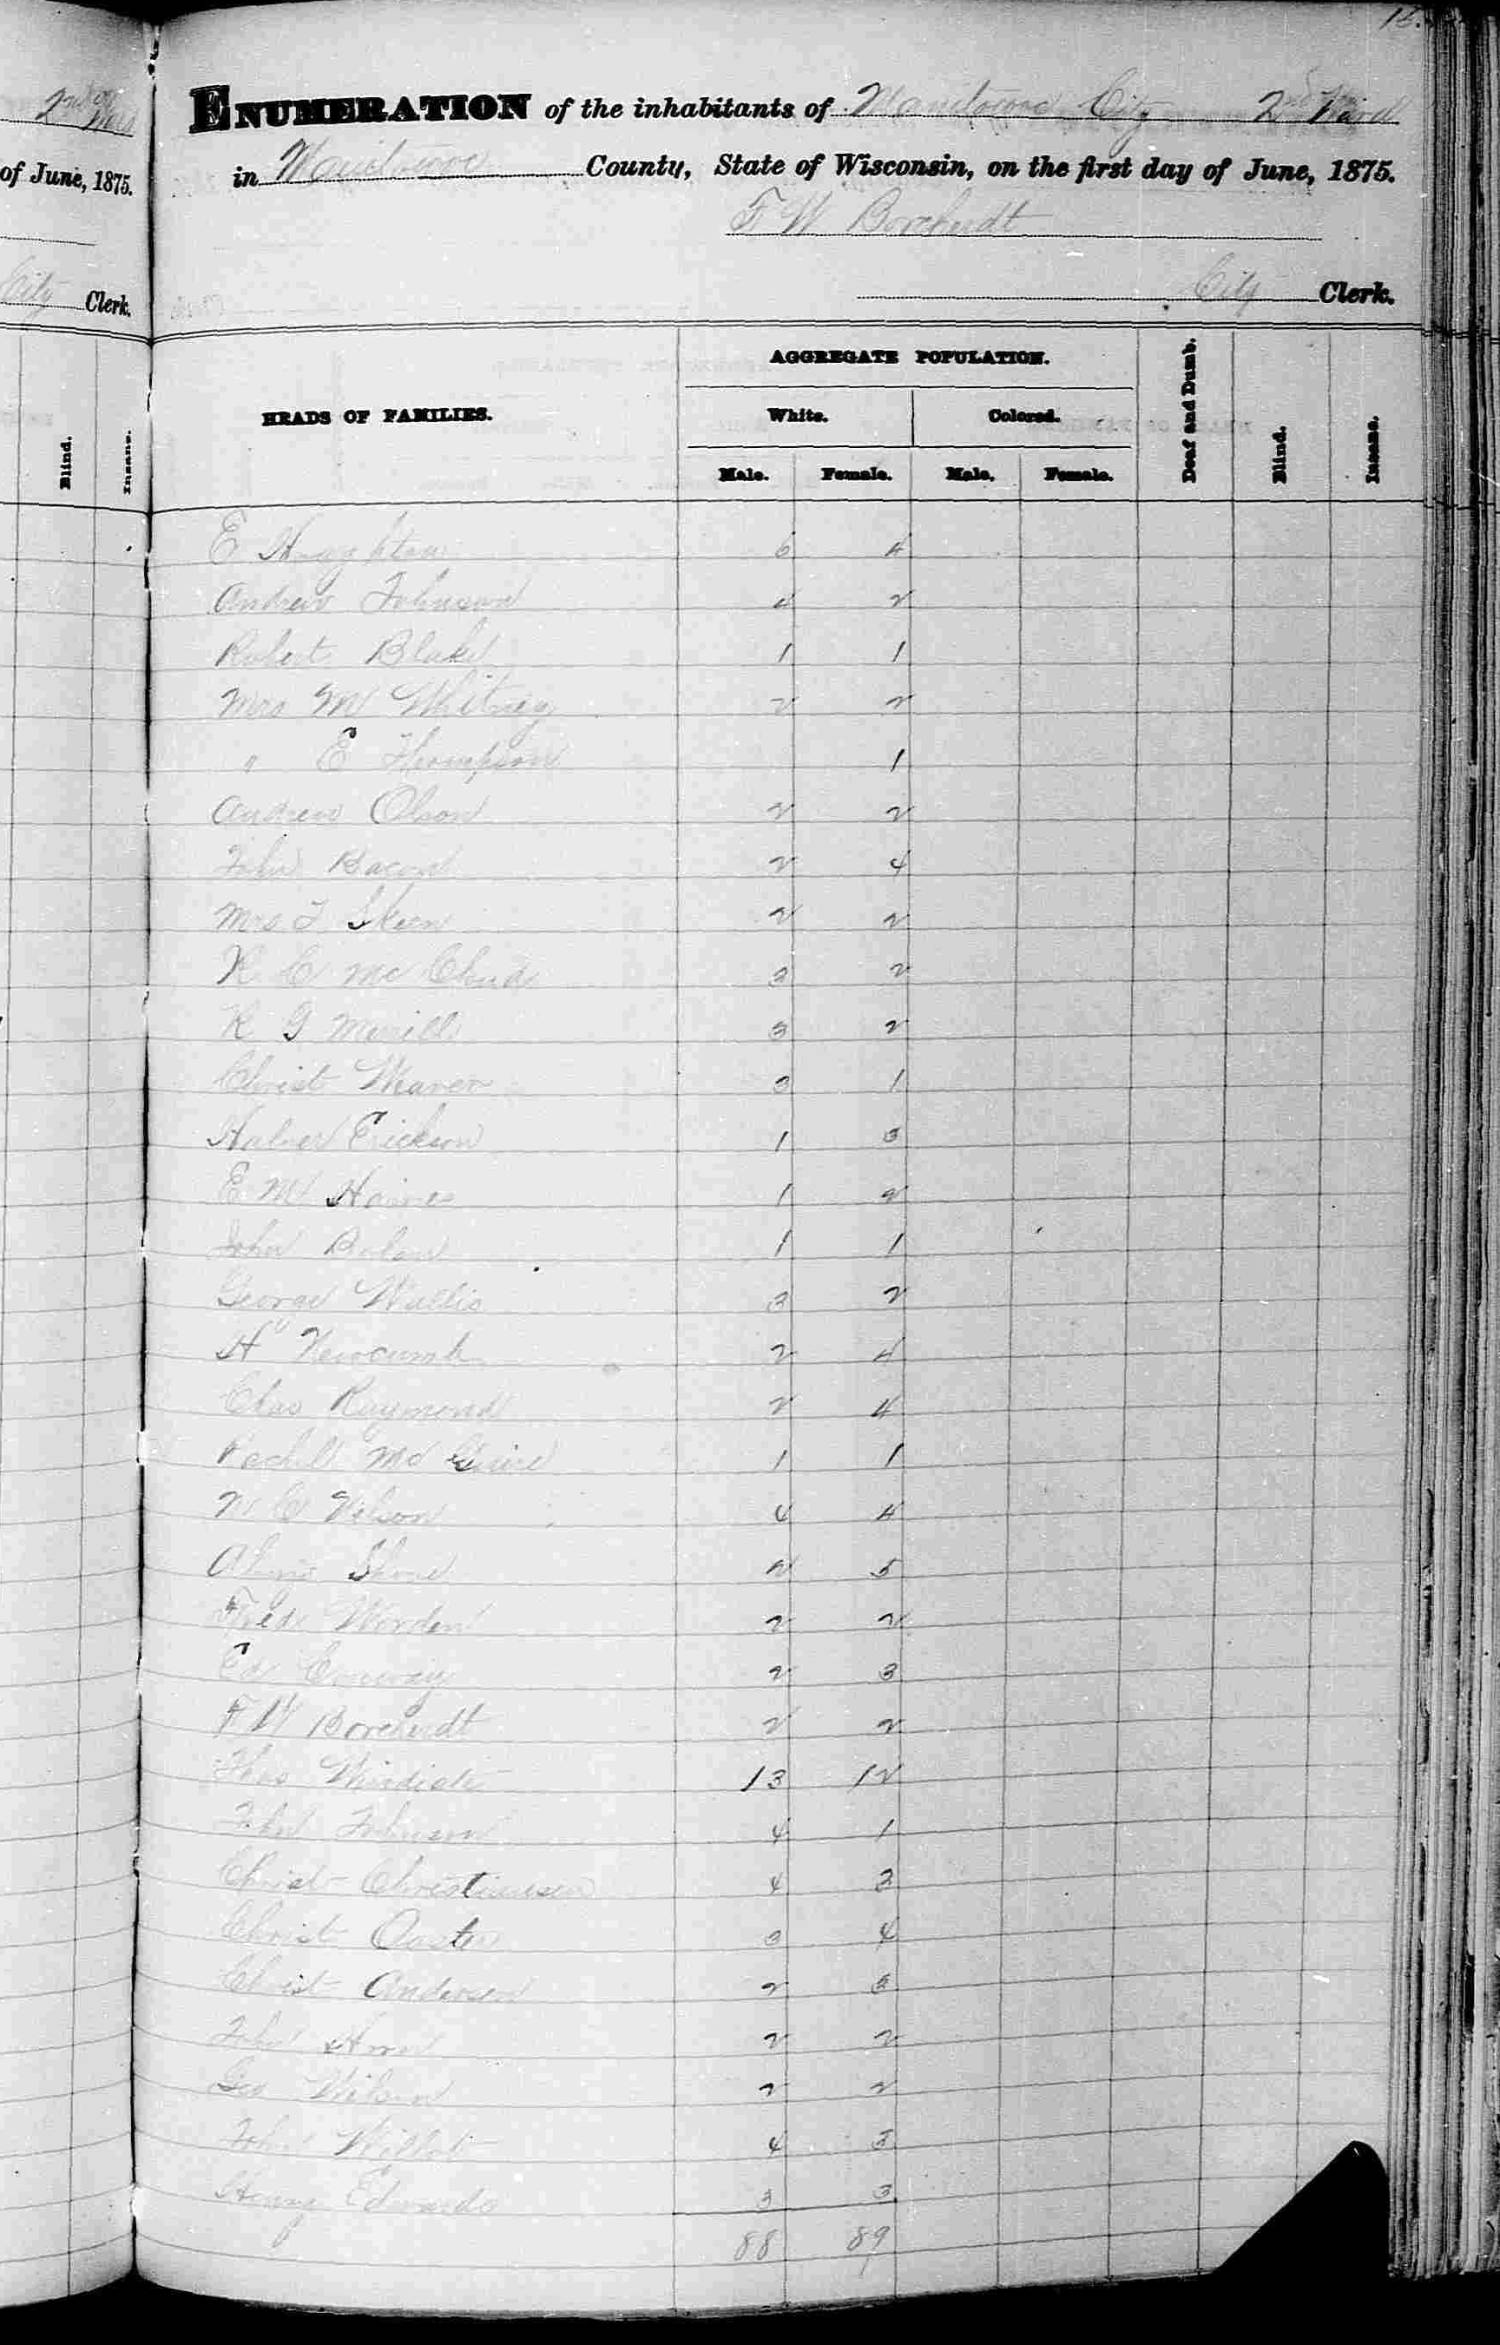 2nd Ward
of June, 1875.
City Clerk.
Blind.
Insane.
ENUMERATION of the inhabitants of Manitowoc City 2nd Ward
in Manitowoc County, State of Wisconsin, on the first day of June, 1875.
F W Borcherdt
City Clerk.
HEADS OF FAMILIES.
AGGREGATE POPULATION.
White. Colored.
Male. Female. Male. Female.
Deaf and Dumb.
Blind.
Insane.
E Haughton 6 4
Andrew Johnson 4 2
Robert Blake 1 1
Mrs M Whitney 2 2
" E Thompson 1
Andrew Olson 2 2
John Bacon 2 4
Mrs T Skeen 2 2
R C Mc Cloud 3 2
R G Merrill 3 2
Christ Weaver 3 1
Halver Erickson 1 3
E M Haines 1 2
John Bolan 1 1
George Wallis 3 2
H Newcomb 2 4
Chas Raymond 2 4
Rachell Mc Guire 1 1
N C Nelson 4 4
Shove 2 5
Fred Worden 2 2
Ed Conway 2 3
F W Borcherdt 2 2
Thos Windiate 13 12
John Johnson 4 1
Christ Christiansen 4 3
Christ Oosten 3 4
Christ Andersen 2 3
John 2 2
Geo Wilson 2 2
John Willot 4 3
Henry Edwards 3 3
88 89